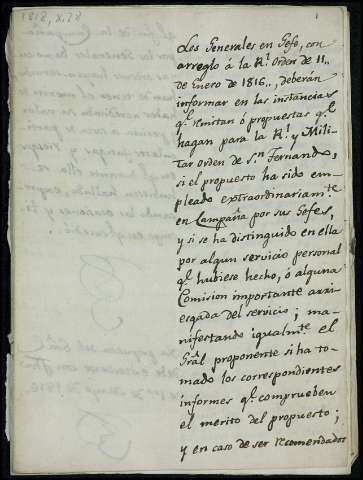 1818, 8, 28
1
Los Generales en Gefe, con
arreglo á la Rl. Orden de 11..
de Enero de 1816.., deberán
informar en las instancias
q.e remitan ó propuestas q.e
hagan para la Rl. y Mili-
tar orden de Sn. Fernando,
si el propuesto ha sido em-
pleado extraordinariam.te
en Campaña por sus Gefes,
y si se ha distinguido en ella
por algun servicio personal
q.e hubiese hecho, ó alguna
Comision importante arri-
esgada del servicio; ma-
nifestando igualm.te el
Gral. proponente si ha to-
mado los correspondientes
informes q.e comprueben
el merito del propuesto;
y en caso de ser recomendados